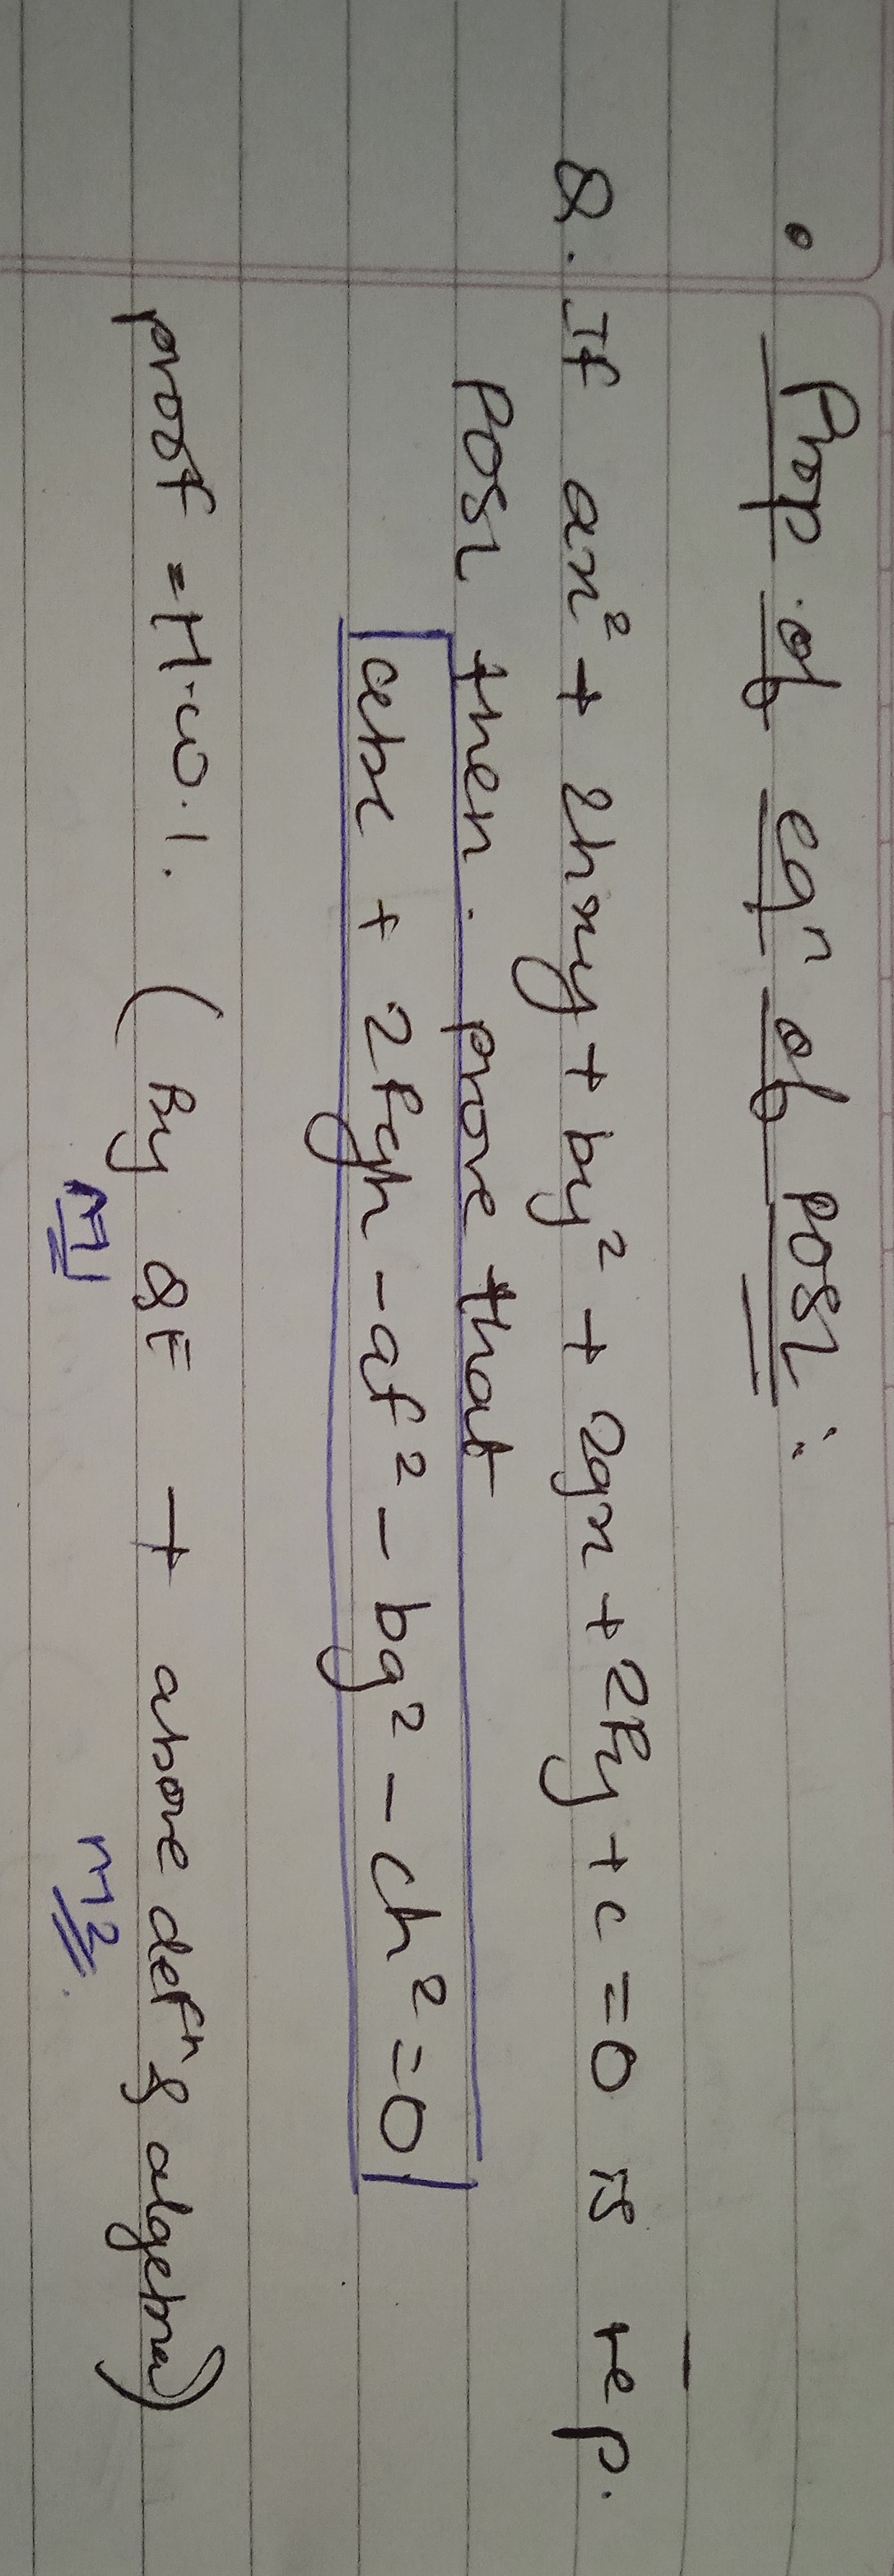 • Prop. of eqⁿ of POSL :
Q. If ax² + 2hxy + by² + 2gx + 2fy + c = 0 is rep.
POSL then prove that
abc + 2fgh - af² - bg² - ch² = 0
proof = H.W.1. (By QE + above defⁿ & algebra)
M1 M2